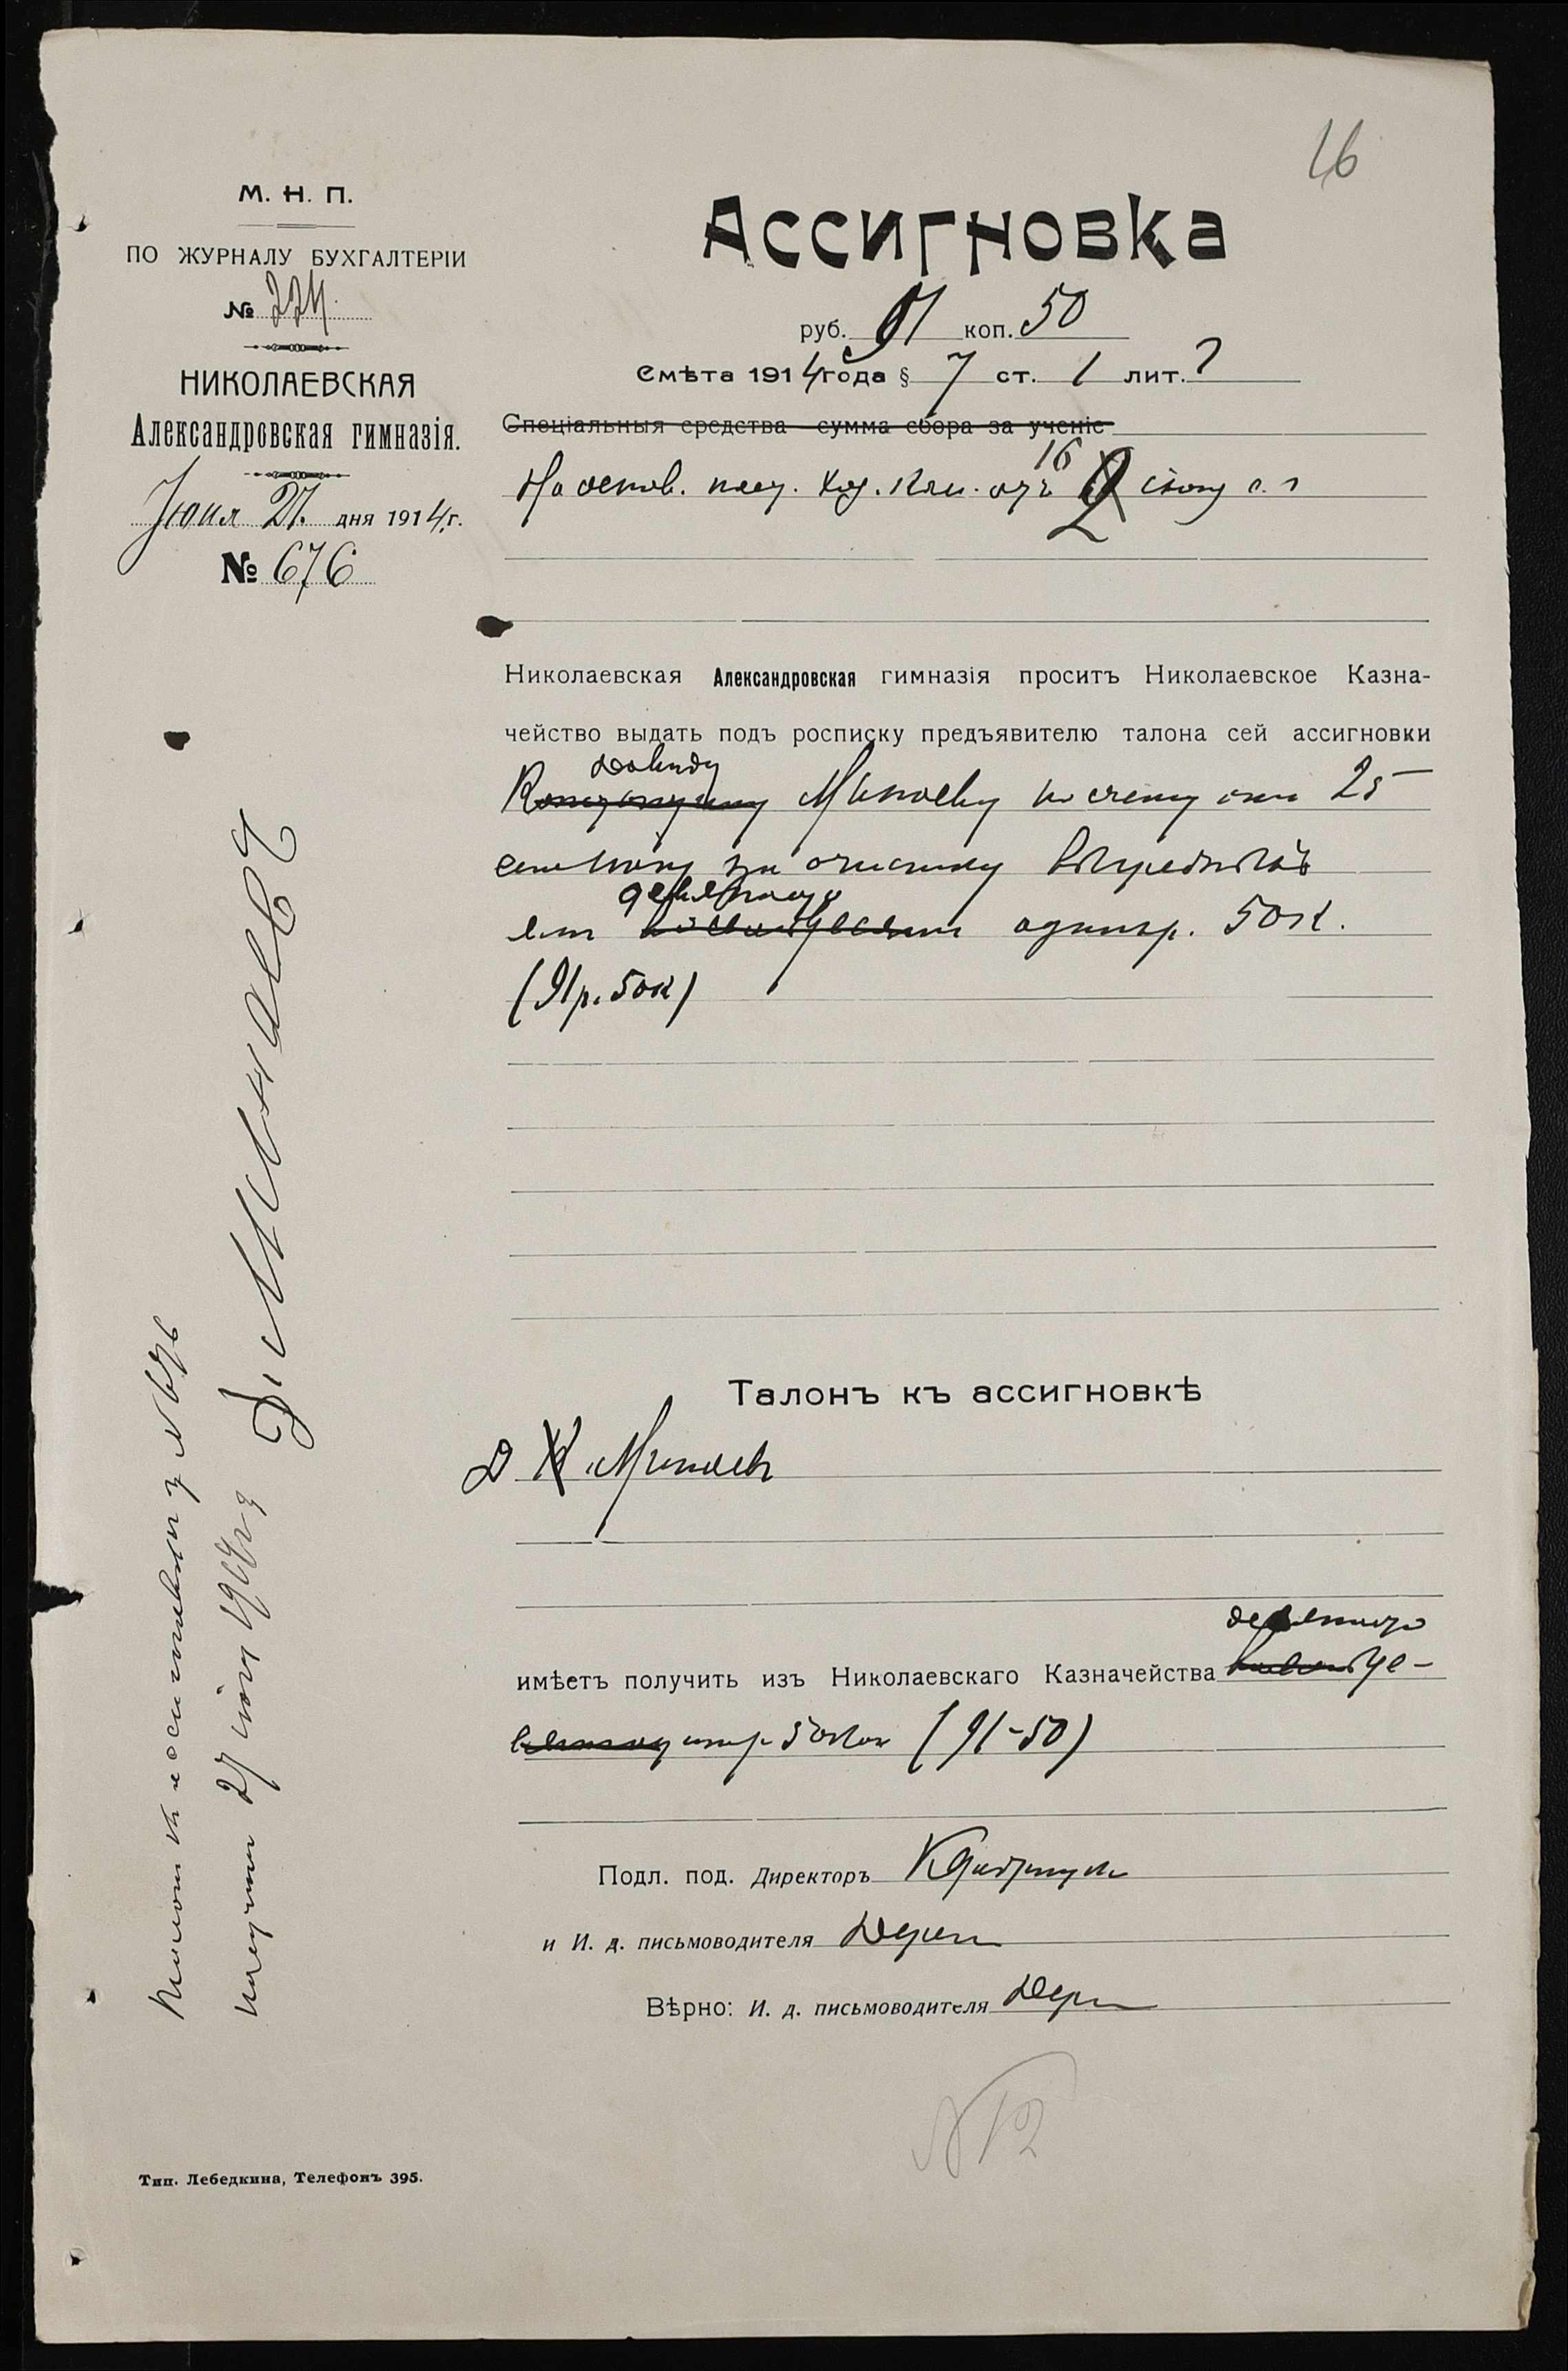 16
М. Н. П.
ПО ЖУРНАЛУ БУХГАЛТЕРІИ
№ 224
НИКОЛАЕВСКАЯ
Александровская гимназія.
Іюня 27 дня 1914 г.
№ 676
Ассигновка
руб. 91 коп. 50
Смѣта 1914 года § 7 ст. 1 лит.
Спеціальныя средства сумма сбора за ученіе
На основ. отъ 16
Николаевская Александровская гимназія проситъ Николаевское Казна-
чейство выдать подъ росписку предъявителю талона сей ассигновки
Давиду
Минаеву по счету отъ 25
за очистку
девяносто
одинъ р. 50 к.
(91 р. 50 к)
Талонъ къ ассигновкѣ
Д К Минаевъ
девяносто
имѣетъ получить изъ Николаевскаго Казначейства
50 коп (91-50)
Подл. под. Директоръ
и И. д. письмоводителя
Вѣрно: И. д. письмоводителя
№ 12
Тип. Лебедкина, Телефонъ 395.
Талонъ къ ассигновкѣ за № 676
получилъ 27 іюня 1914 г.
Д. Минаевъ